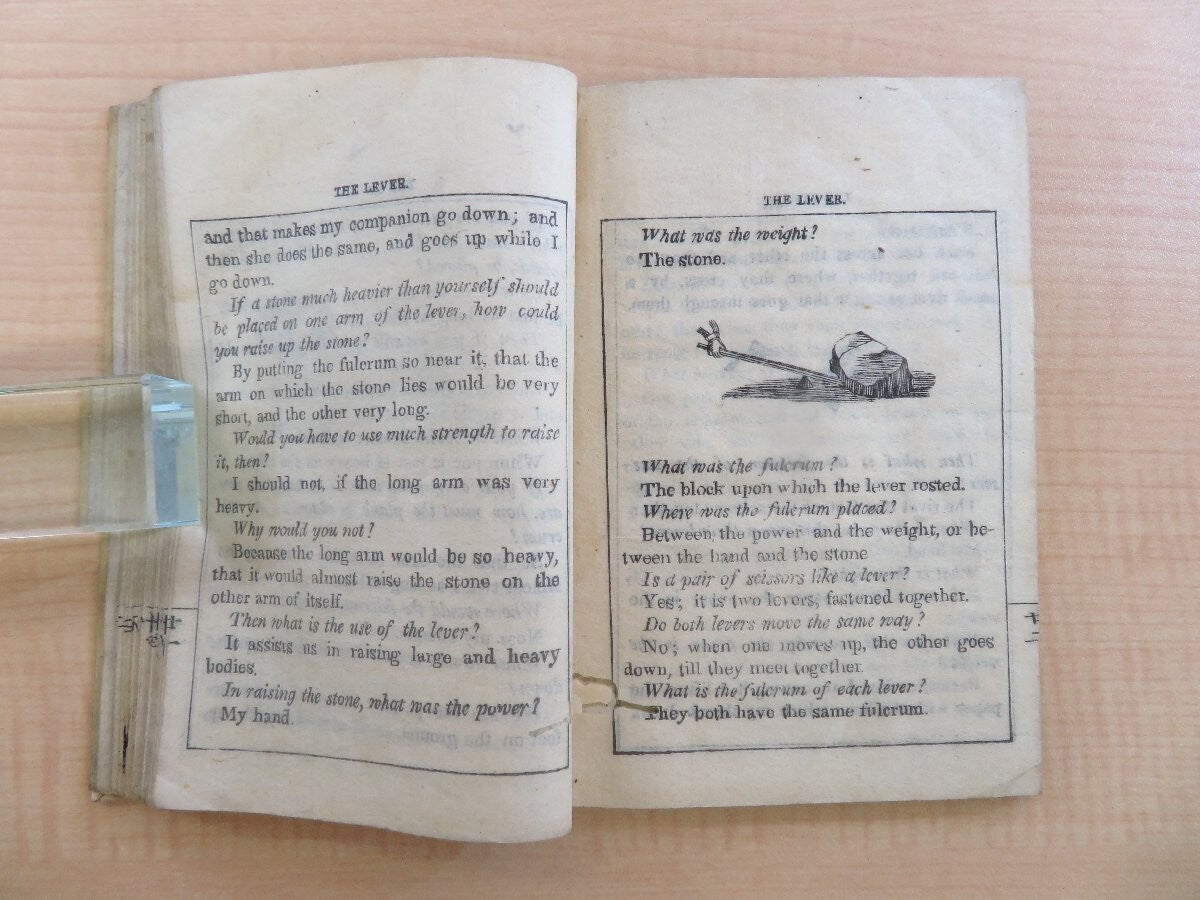 THE LEVER.
and that makes my companion go down; and
then she does the same, and goes up while I
go down.
If a stone much heavier than yourself should
be placed on one arm of the lever, how could
you raise up the stone?
By putting the fulcrum so near it, that the
arm on which the stone lies would be very
short, and the other very long.
Would you have to use much strength to raise
it, then?
I should not, if the long arm was very
heavy.
Why would you not?
Because the long arm would be so heavy,
that it would almost raise the stone on the
other arm of itself.
Then what is the use of the lever?
It assists us in raising large and heavy
bodies.
In raising the stone, what was the power?
My hand.
THE LEVER.
What was the weight?
The stone.
What was the fulcrum?
The block upon which the lever rested.
Where was the fulcrum placed?
Between the power and the weight, or be-
tween the hand and the stone
Is a pair of scissors like a lever?
Yes; it is two levers, fastened together.
Do both levers move the same way?
No; when one moves up, the other goes
down, till they meet together.
What is the fulcrum of each lever?
They both have the same fulcrum.